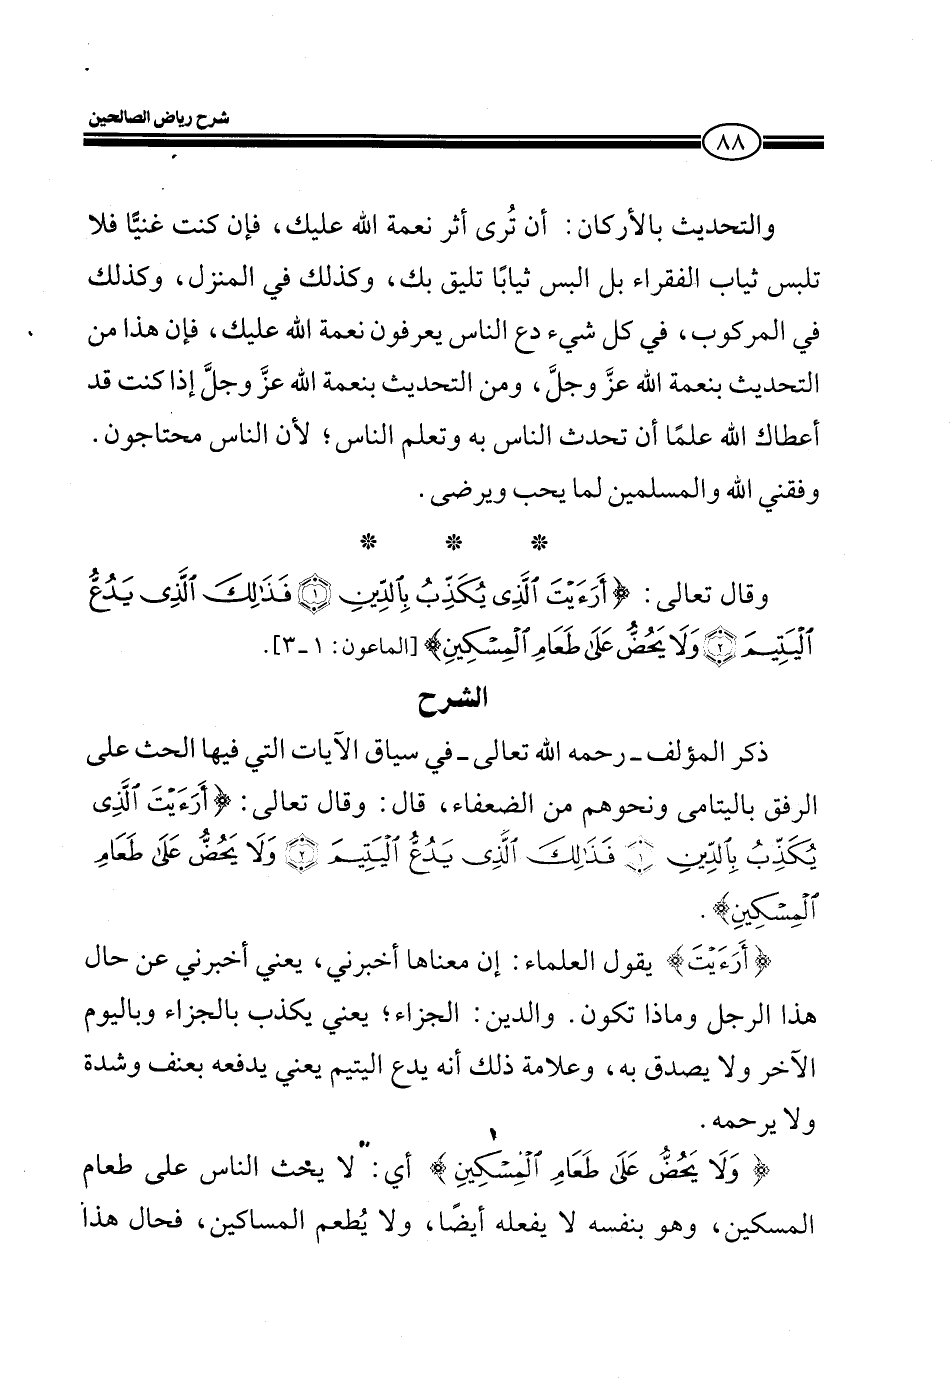 شرح رياض الصالحين
٨٨
والتحديث بالأركان: أن تُرى أثر نعمة الله عليك، فإن كنت غنيًّا فلا
تلبس ثياب الفقراء بل البس ثيابًا تليق بك، وكذلك في المنزل، وكذلك
في المركوب، في كل شيء دع الناس يعرفون نعمة الله عليك، فإن هذا من
التحديث بنعمة الله عزَّ وجلَّ، ومن التحديث بنعمة الله عزَّ وجلَّ إذا كنت قد
أعطاك الله علمًا أن تحدث الناس به وتعلم الناس؛ لأن الناس محتاجون.
وفقني الله والمسلمين لما يحب ويرضى.
* * *
وقال تعالى: ﴿أَرَءَيْتَ ٱلَّذِى يُكَذِّبُ بِٱلدِّينِ ١ فَذَٰلِكَ ٱلَّذِى يَدُعُّ
ٱلْيَتِيمَ ٢ وَلَا يَحُضُّ عَلَىٰ طَعَامِ ٱلْمِسْكِينِ﴾ [الماعون: ١-٣].
الشرح
ذكر المؤلف - رحمه الله تعالى - في سياق الآيات التي فيها الحث على
الرفق باليتامى ونحوهم من الضعفاء، قال: وقال تعالى: ﴿أَرَءَيْتَ ٱلَّذِى
يُكَذِّبُ بِٱلدِّينِ ١ فَذَٰلِكَ ٱلَّذِى يَدُعُّ ٱلْيَتِيمَ ٢ وَلَا يَحُضُّ عَلَىٰ طَعَامِ
ٱلْمِسْكِينِ﴾.
﴿أَرَءَيْتَ﴾ يقول العلماء: إن معناها أخبرني، يعني أخبرني عن حال
هذا الرجل وماذا تكون. والدين: الجزاء؛ يعني يكذب بالجزاء وباليوم
الآخر ولا يصدق به، وعلامة ذلك أنه يدع اليتيم يعني يدفعه بعنف وشدة
ولا يرحمه.
﴿وَلَا يَحُضُّ عَلَىٰ طَعَامِ ٱلْمِسْكِينِ﴾ أي: لا يحث الناس على طعام
المسكين، وهو بنفسه لا يفعله أيضًا، ولا يُطعم المساكين، فحال هذا